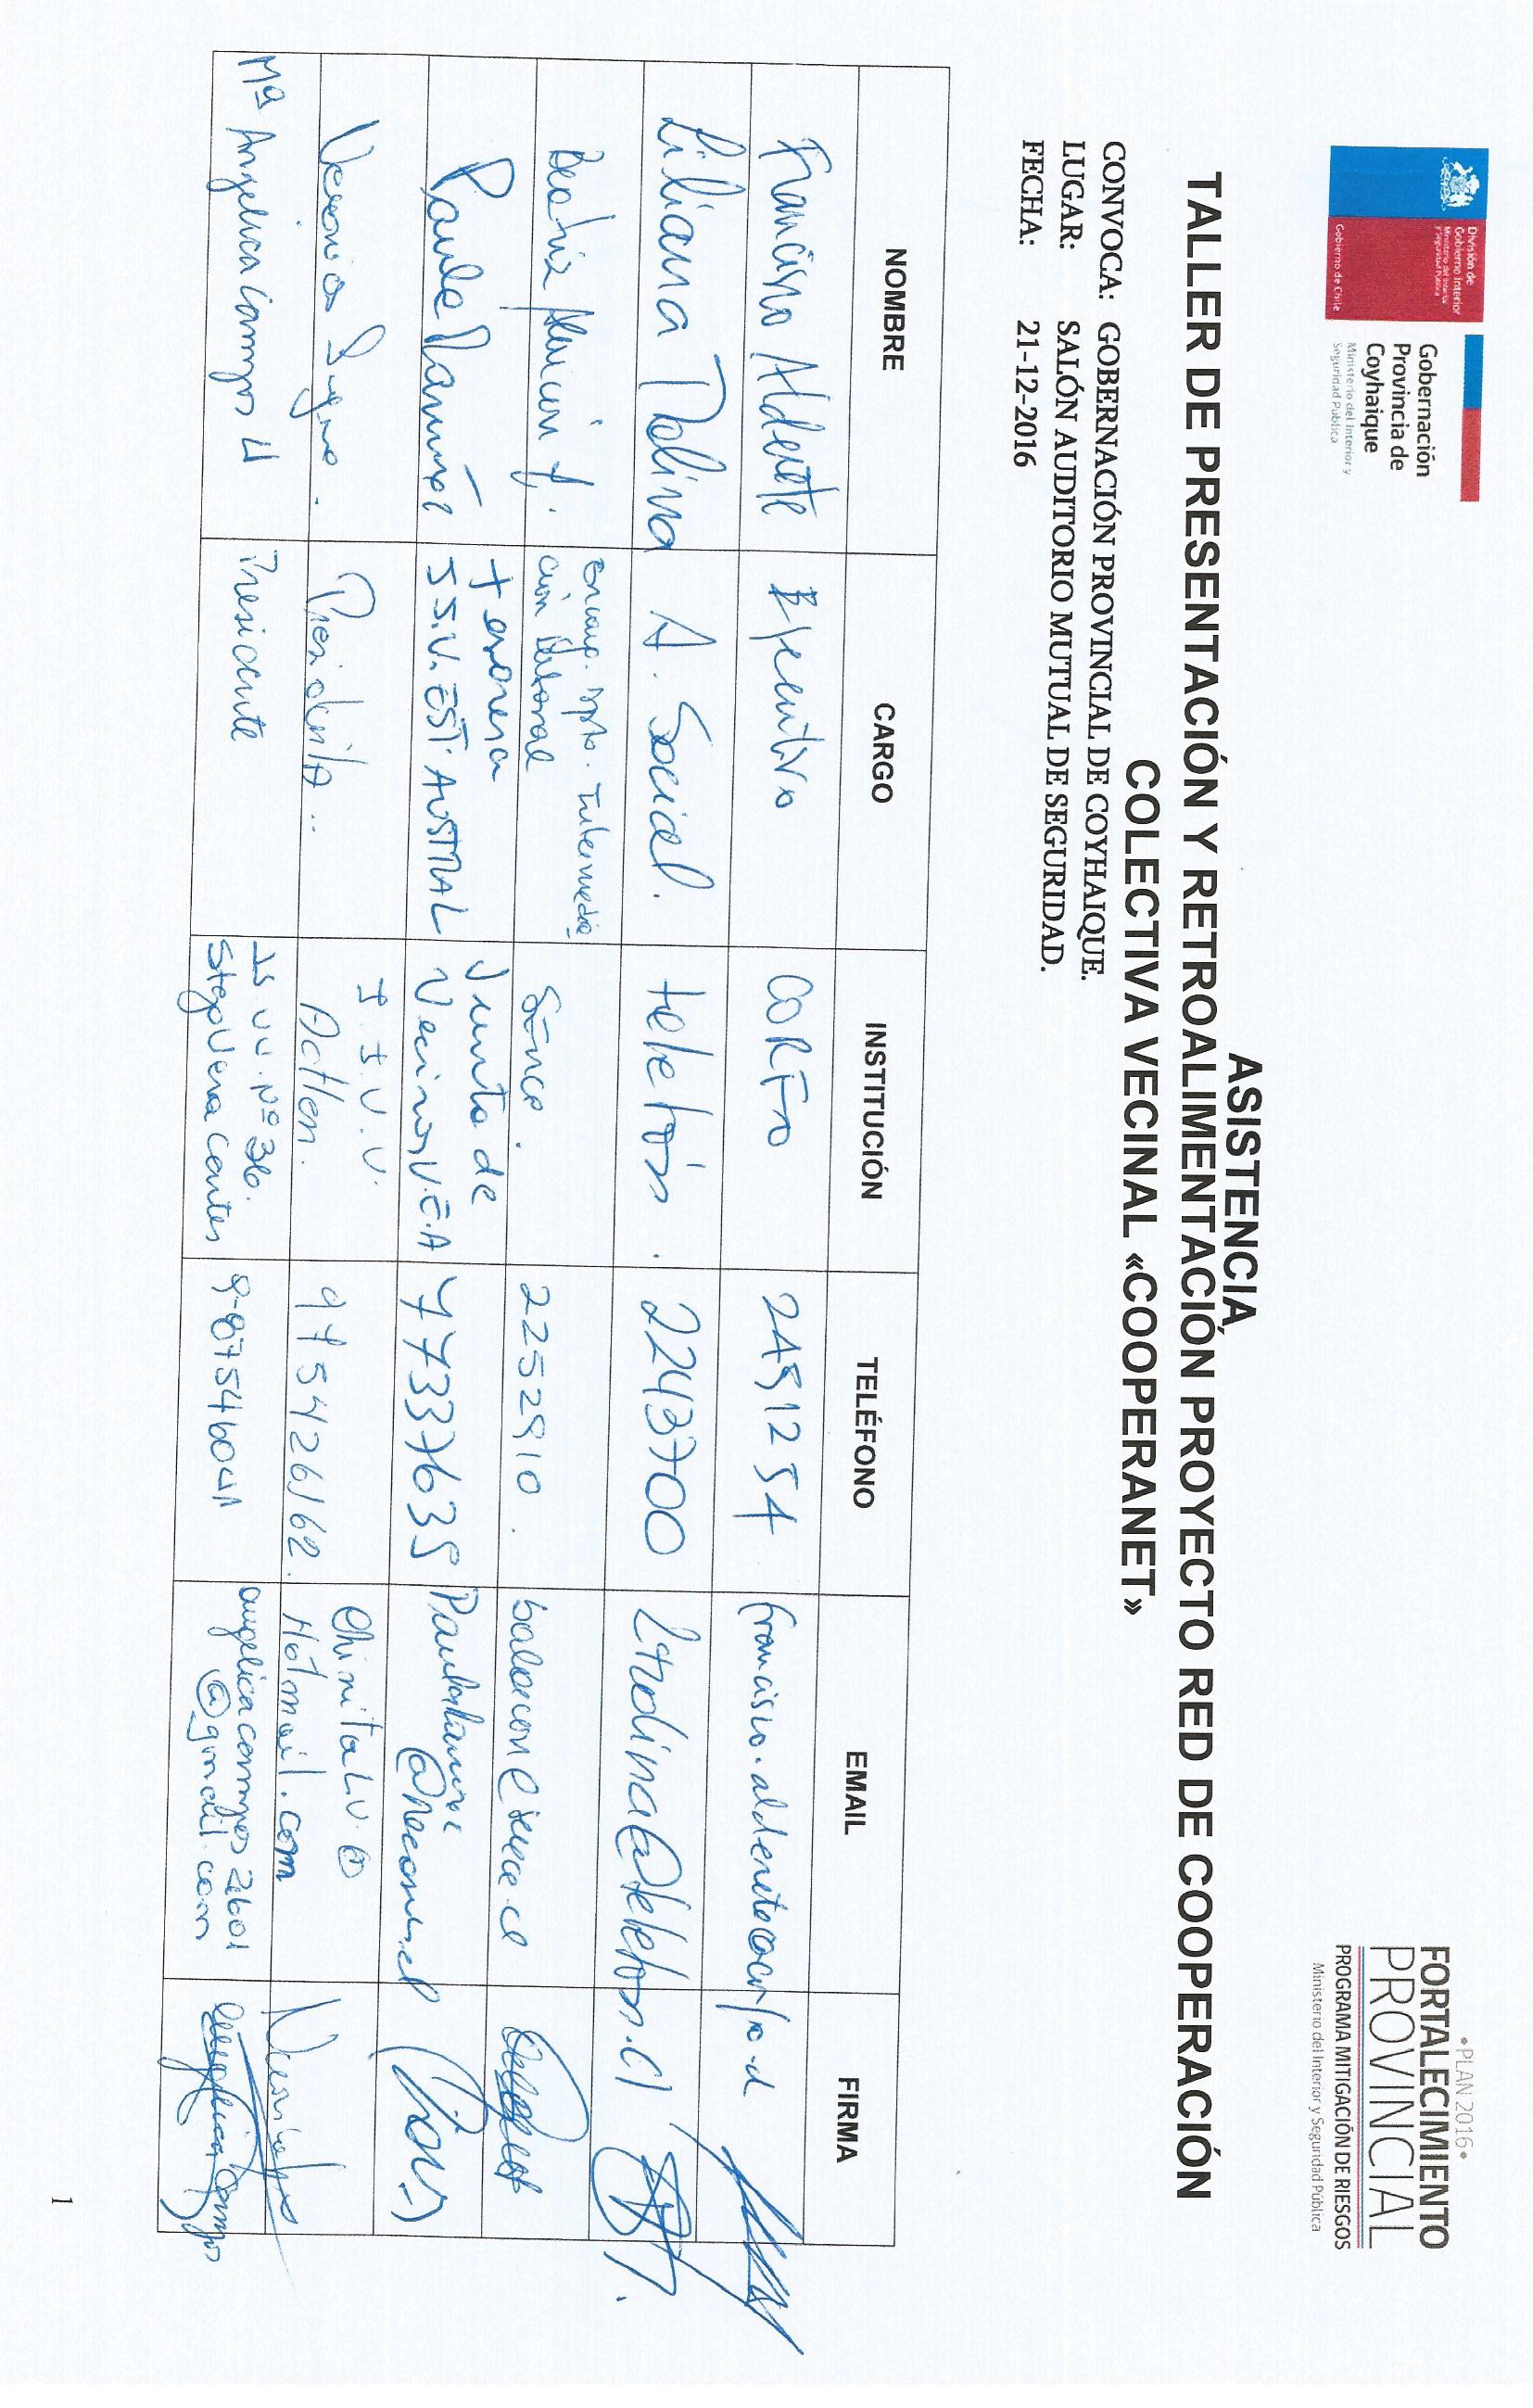 División de
Gobierno Interior
Ministerio del Interior
y Seguridad Pública
Gobierno de Chile
Gobernación
Provincia de
Coyhaique
Ministerio del Interior y
Seguridad Pública
•PLAN 2016•
FORTALECIMIENTO
PROVINCIAL
PROGRAMA MITIGACIÓN DE RIESGOS
Ministerio del Interior y Seguridad Pública
ASISTENCIA
TALLER DE PRESENTACIÓN Y RETROALIMENTACIÓN PROYECTO RED DE COOPERACIÓN
COLECTIVA VECINAL «COOPERANET»
CONVOCA: GOBERNACIÓN PROVINCIAL DE COYHAIQUE.
LUGAR: SALÓN AUDITORIO MUTUAL DE SEGURIDAD.
FECHA: 21-12-2016
NOMBRE CARGO INSTITUCIÓN TELÉFONO EMAIL FIRMA
Francisco Alderete Ejecutivo CORFO 2451254 francisco.alderete@corfo.cl
Liliana Molina A. Social. teletón. 2243700 @teleton.cl
Beatriz Alarcón Encarg. Dpto. Intermedia
ción Laboral Sence. 2252910. balarcon@sence.cl
Paula Ramírez tesorera
JJ.V. EST. AUSTRAL Junta de
Vecinos V.E.A 77337635 Paularamirez
Veronica Presidenta.. J.J.V.V. 975426162. ChinitaLV@
Hotmail.com
Mª Angelica Campos U Presidente JJ.VV. Nº 36.
Stgo Vera Cartes 9-87546041 angelicacampos2601
@gmail.com
Angelica Campos
1